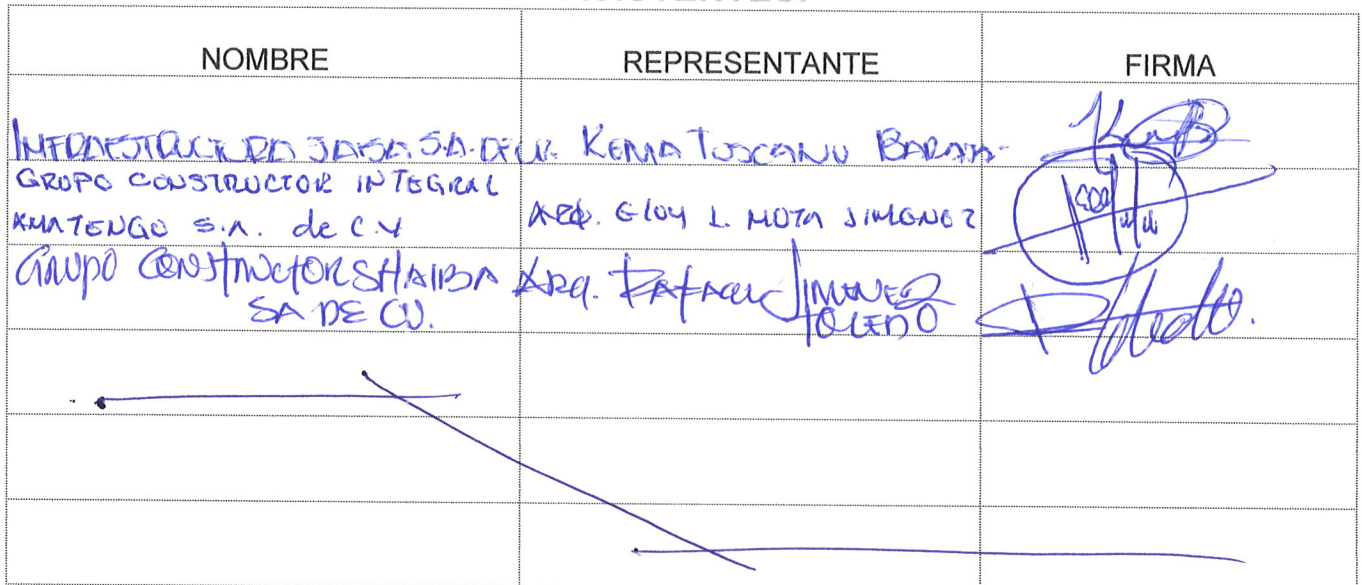 NOMBRE REPRESENTANTE FIRMA
INFRAESTRUCTURA JASA S.A. DE C.V. KENIA TOSCANO
GRUPO CONSTRUCTOR INTEGRAL
AMATENGO S.A. de C.V ARQ. ELOY L. MOTA JIMENEZ
GRUPO CONSTRUCTOR SHAIBA ARQ. RAFAEL JIMENEZ
SA DE CV. TOLEDO